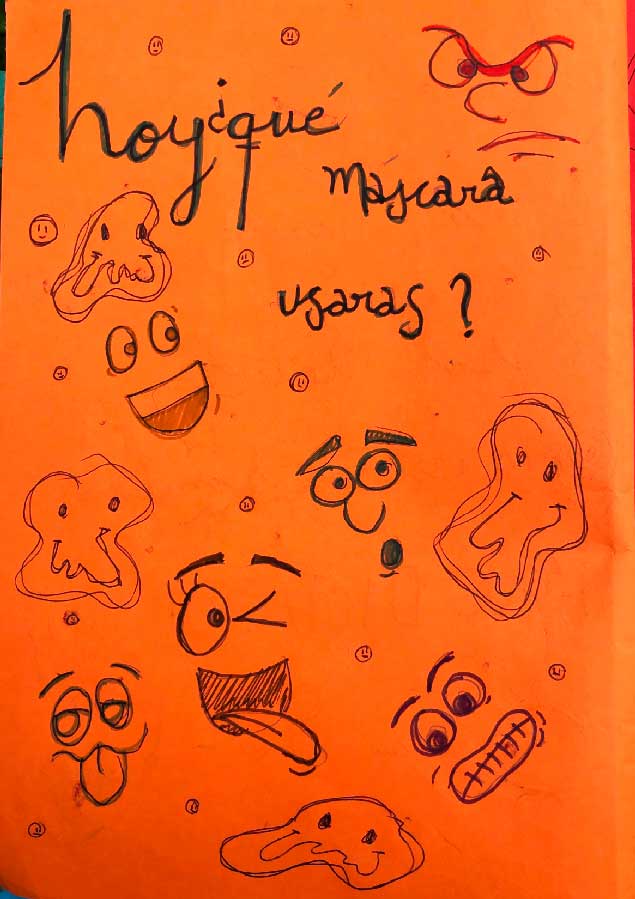 hoy ¿qué
máscara
usaras ?